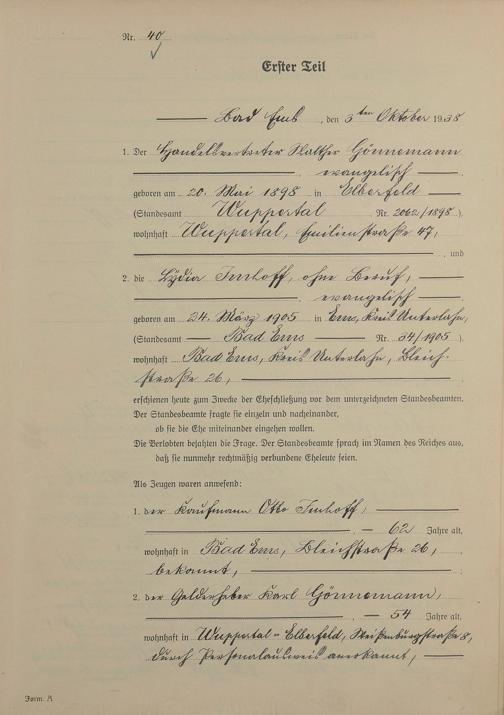 Nr. 40
Erster Teil
Bad Ems, den 3ten Oktober 1938
1. Der Handelsvertreter Walther Gönnemann
evangelisch
geboren am 20. Mai 1898 in Elberfeld
(Standesamt Wuppertal Nr. 2062/1898),
wohnhaft Wuppertal, Emilienstraße 47,
, und
2. die Lydia Imhoff, ohne Beruf,
evangelisch
geboren am 24. März 1905 in Ems, Kreis Unterlahn,
(Standesamt Bad Ems Nr. 34/1905),
wohnhaft Bad Ems, Kreis Unterlahn, Bleich-
straße 26,
erschienen heute zum Zwecke der Eheschließung vor dem unterzeichneten Standesbeamten.
Der Standesbeamte fragte sie einzeln und nacheinander,
ob sie die Ehe miteinander eingehen wollen.
Die Verlobten bejahten die Frage. Der Standesbeamte sprach im Namen des Reiches aus,
daß sie nunmehr rechtmäßig verbundene Eheleute seien.
Als Zeugen waren anwesend:
1. der Kaufmann Otto Imhoff,
62 Jahre alt,
wohnhaft in Bad Ems, Bleichstraße 26,
bekannt,
2. der Gelderheber Karl Gönnemann,
54 Jahre alt,
wohnhaft in Wuppertal-Elberfeld, Weißenburgstraße 8,
durch Personalausweis anerkannt,
Form. A